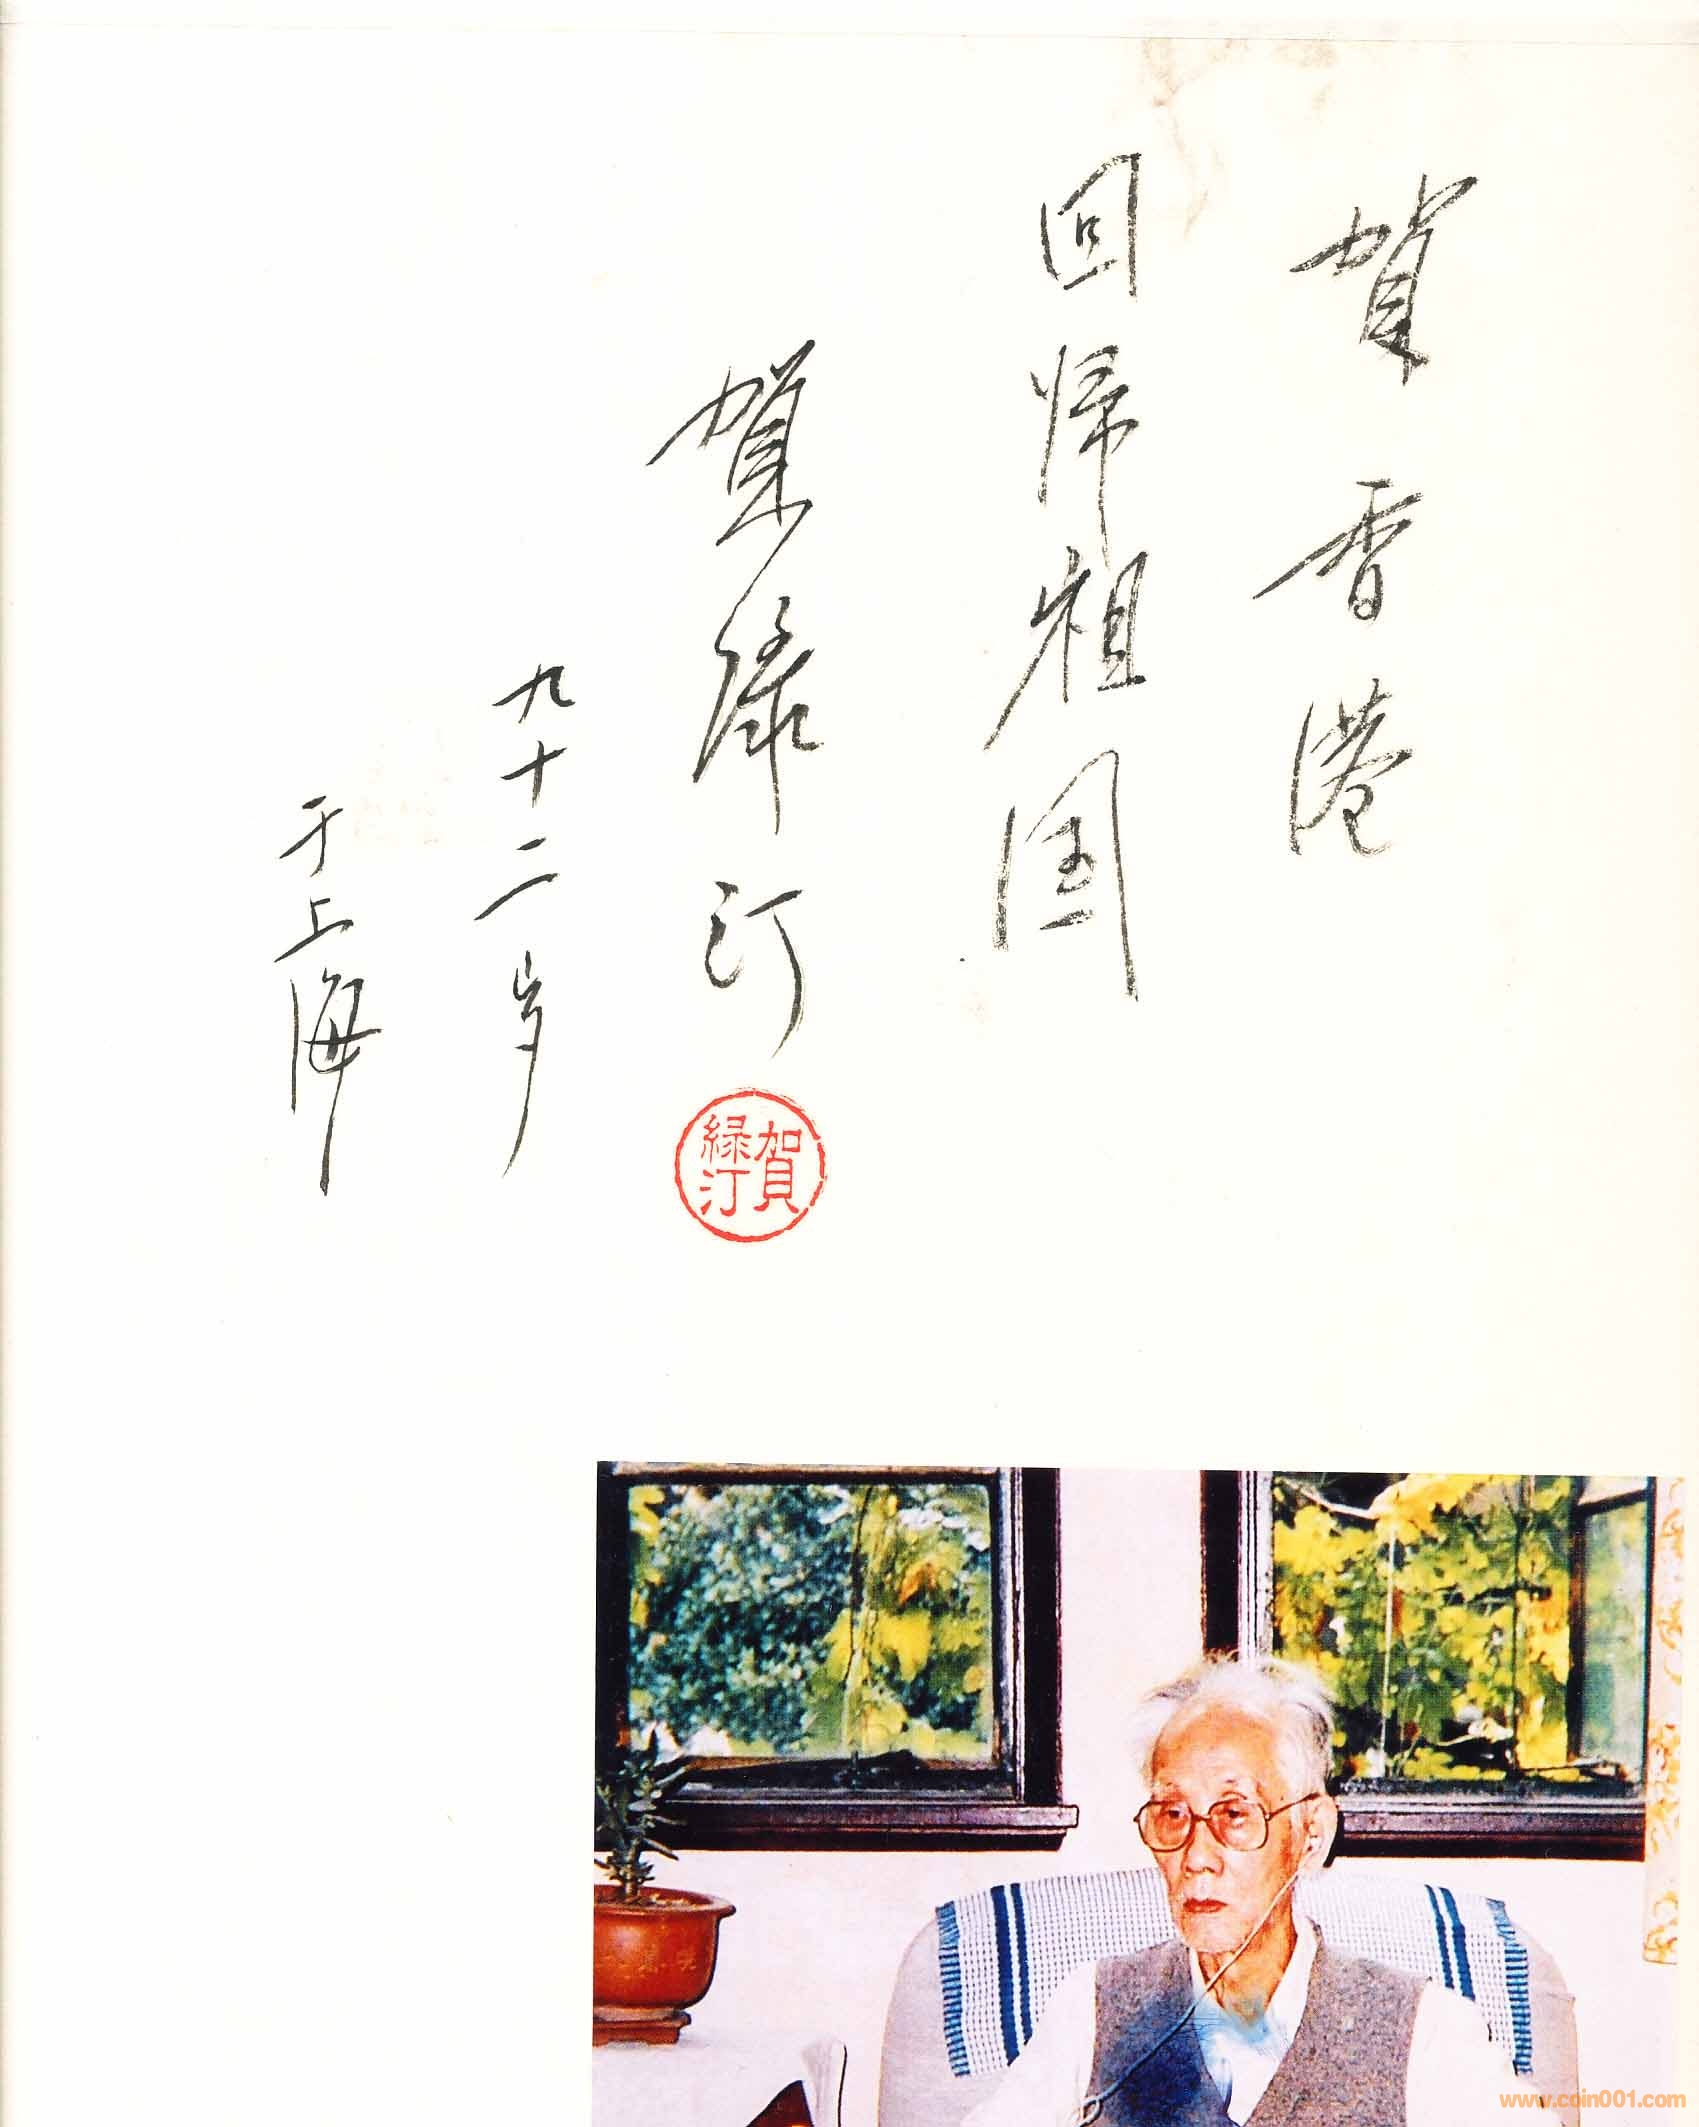 賀香港
回归祖国
賀绿汀
九十二岁
于上海
賀
緑汀
www.coin001.com